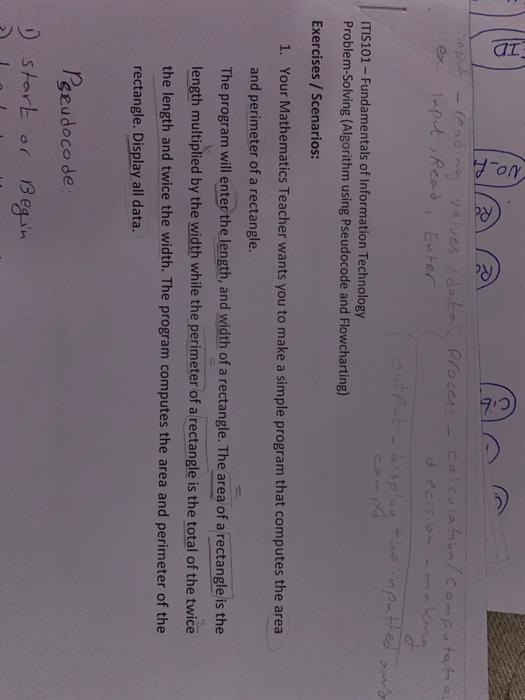 ID
No.
input - reading values/data
ex. Input, Read, Enter
Process - calculation/computation
decision-making
output - display the inputted and
ITIS101 – Fundamentals of Information Technology
Problem-Solving (Algorithm using Pseudocode and Flowcharting)
Exercises / Scenarios:
1. Your Mathematics Teacher wants you to make a simple program that computes the area
and perimeter of a rectangle.
The program will enter the length, and width of a rectangle. The area of a rectangle is the
length multiplied by the width while the perimeter of a rectangle is the total of the twice
the length and twice the width. The program computes the area and perimeter of the
rectangle. Display all data.
Pseudocode:
1) start or Begin